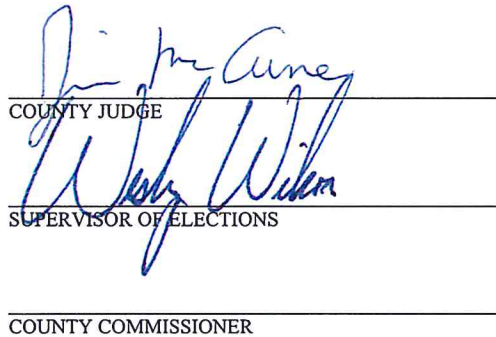 COUNTY JUDGE
Wesley Wilson
SUPERVISOR OF ELECTIONS
COUNTY COMMISSIONER